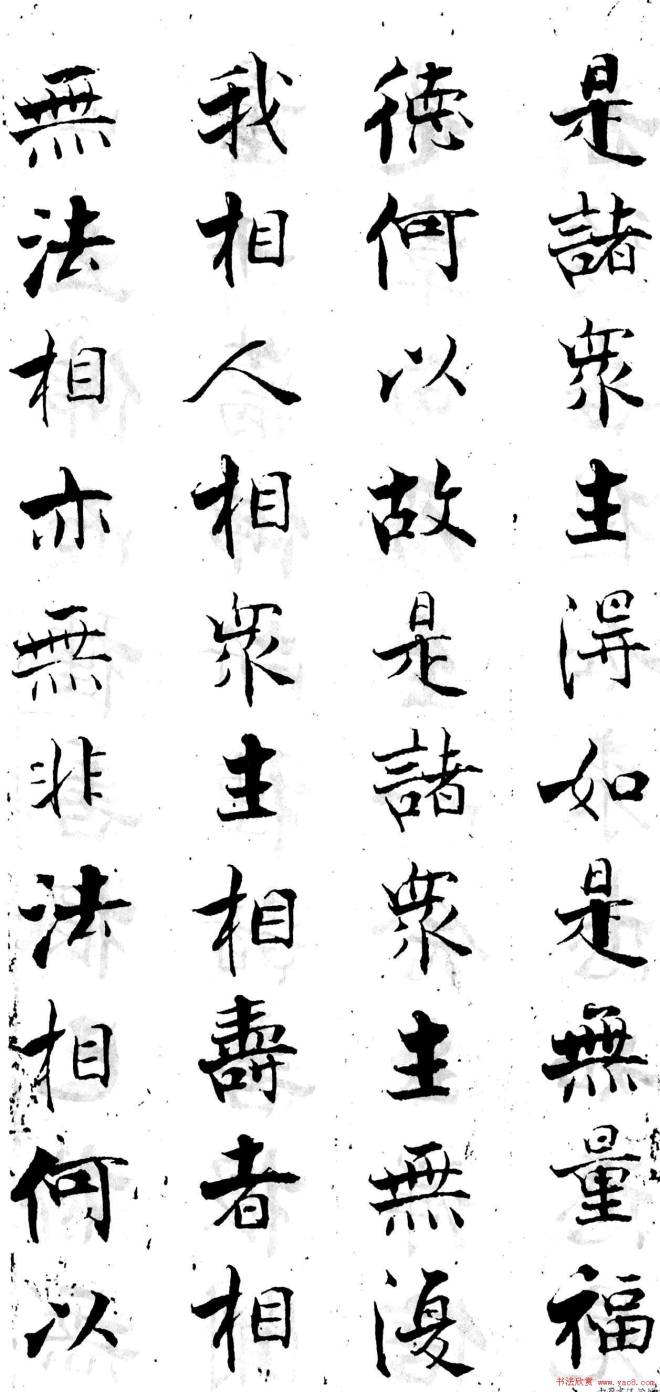 是諸衆生得如是無量福
德何以故是諸衆生無復
我相人相衆生相壽者相
無法相亦無非法相何以
书法欣赏 www.yac8.com